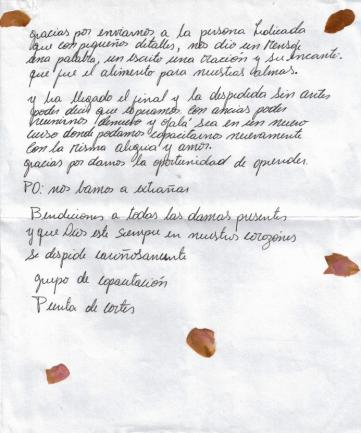 gracias por enviarnos a la persona indicada
que con pequeños detalles, nos dio un mensaje
una palabra, un escrito una oración y su encanto.
que fue el alimento para nuestras almas.
y ha llegado el final y la despedida sin antes
poder decir que esperamos con ancias poder
reunirnos denuevo y ojalá sea en un nuevo
curso donde podamos capacitarnos nuevamente
con la misma alegria y amor.
gracias por darnos la oportunidad de aprender.
PD: nos bamos a extrañar
Bendiciones a todas las damas presentes
y que Dios este siempre en nuestros corazónes
Se despide cariñosamente
grupo de capacitación
Punta de cortes